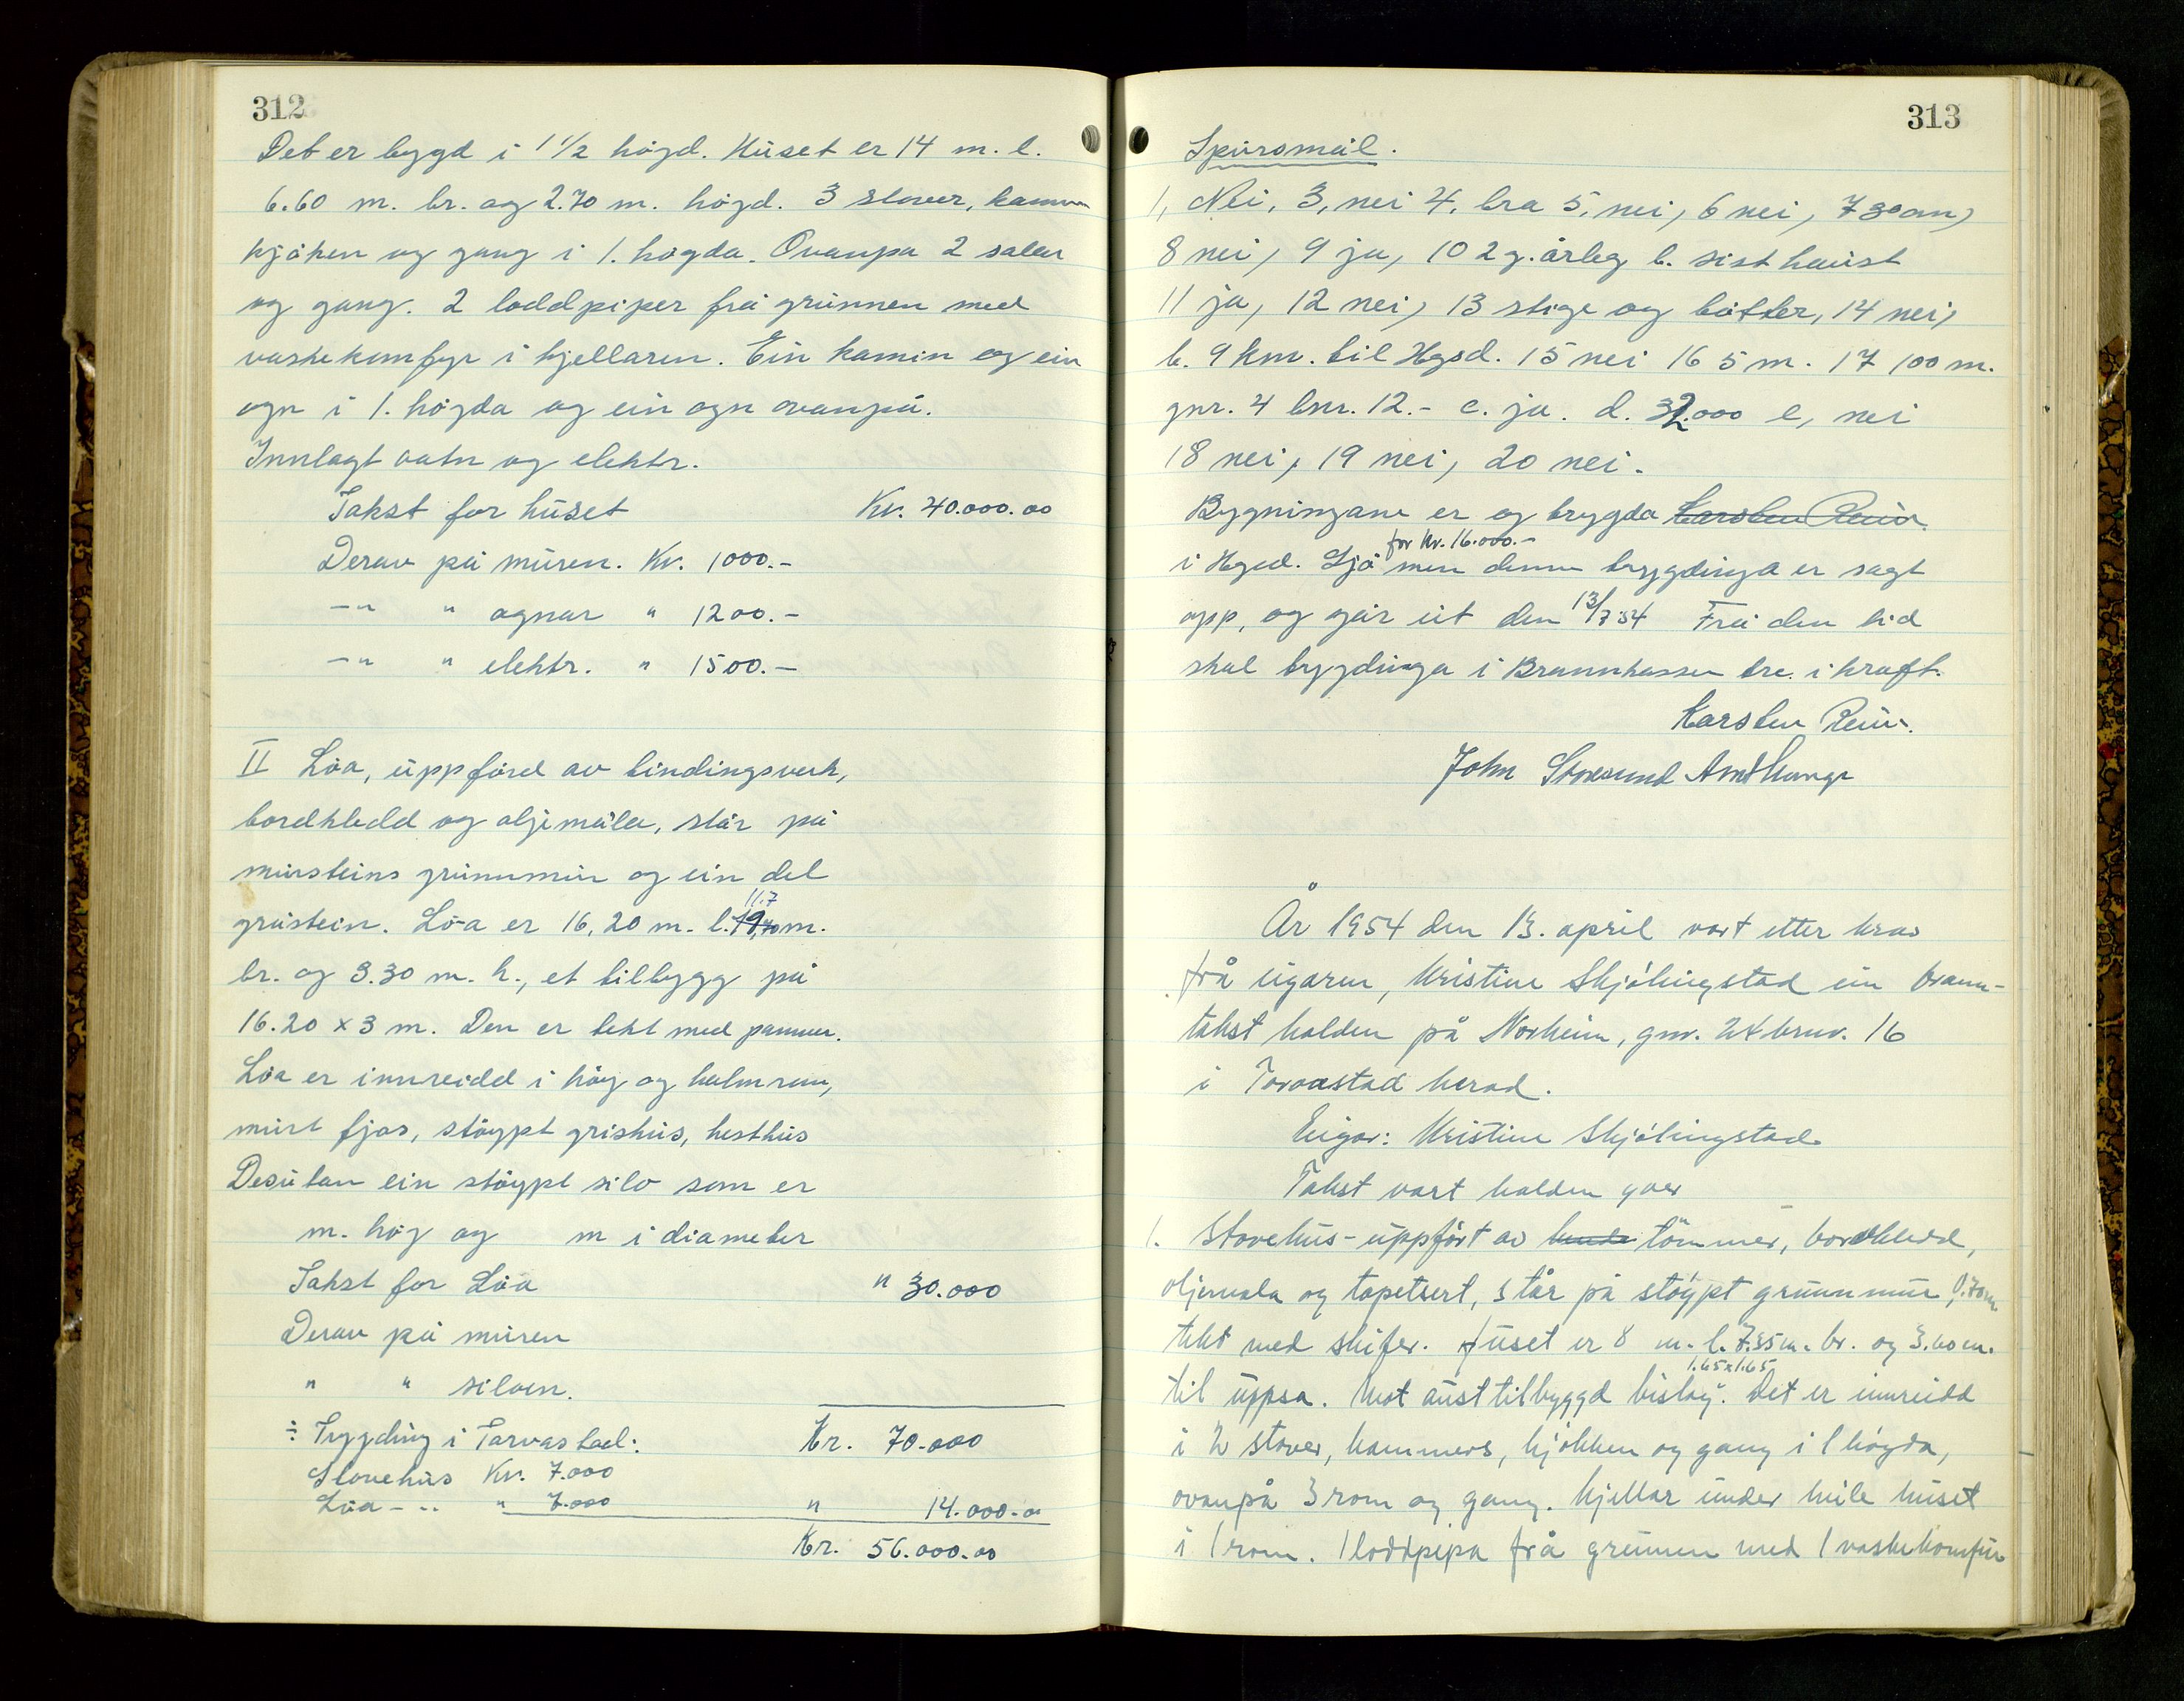 312
Det er bygd i 1 1/2 högd. Huset er 14 m. l.
6.60 m. br. og 2.70 m. högd. 3 stover, kammer
kjöken og gang i 1. högda. Ovanpa 2 salar
og gang. 2 loddpiper frå grunnen med
vaskekomfyr i kjellaren. Ein kamin og ein
ogn i 1. högda og ein ogn ovanpå.
Innlagt vatn og elektr.
Takst for huset Kr. 40.000.00
Derav på muren. Kr. 1000.-
-"- " ognar " 1200.-
-"- " elektr. " 1500.-
II Löa, uppförd av bindingsverk,
bordkledd og oljemåla, står på
mursteins grunnmur og ein del
gråstein. Löa er 16,20 m. l. 11.7 m.
br. og 3.30 m. h., et tilbygg på
16.20 x 3 m. Den er tekt med pannur.
Löa er innreidd i höy og halmrum,
murt fjos, stöypt grishus, hesthus
Desutan ein stöypt silo som er
m. hög og m i diameter
Takst for Löa " 30.000
Derav på muren
" " siloen.
÷ Trygding i Torvastad: Kr. 70.000
Stovehus Kr. 7.000
Löa - " - " 7.000 " 14.000.00
Kr. 56.000.00
313
Spursmål.
1, Nei, 3, nei 4, bra 5, nei, 6 nei, 7 30 cm,
8 nei, 9 ja, 10 2 g. årleg b. sist haust
11 ja, 12 nei, 13 stige og bötter, 14 nei,
b. 9 km. til Hgsd. 15 nei 16 5 m. 17 100 m.
gnr. 4 bnr. 12.- c. ja. d. 32.000 e, nei
18 nei, 19 nei, 20 nei.
Bygningane er og trygda Karsten Reiur
for kr. 16.000.-
i Hgsd. Sjö men denne trygdinga er sagt
opp, og går ut den 13/7 54 Frå den tid
skal trygdinga i Brannkassen tre i kraft.
Karsten
John Storesund
År 1954 den 13. april vart etter krav
frå eigaren, Kristine Skjölingstad ein brann-
takst halden på Norheim, gnr. 24 bruv. 16
i Torvastad herad.
Eigar: Kristine Skjölingstad
Takst vart halden yver
1. Stovehus - uppfört av tömmer, bordkledd,
oljemala og tapetsert, står på stöypt grunnmur 0.70 m.
tekt med skifer. Huset er 8 m. l. 7.35 m. br. og 3.60 m.
1.65x1.65
til uppsa. Mot aust tilbyggd bislag. Det er innreidd
i 2 stover, kammers, kjökken og gang i 1 högda,
ovanpå 3 rom og gang. Kjellar under heile huset
i 1 rom. 1 loddpipa frå grunnen med 1 vaskekomfur